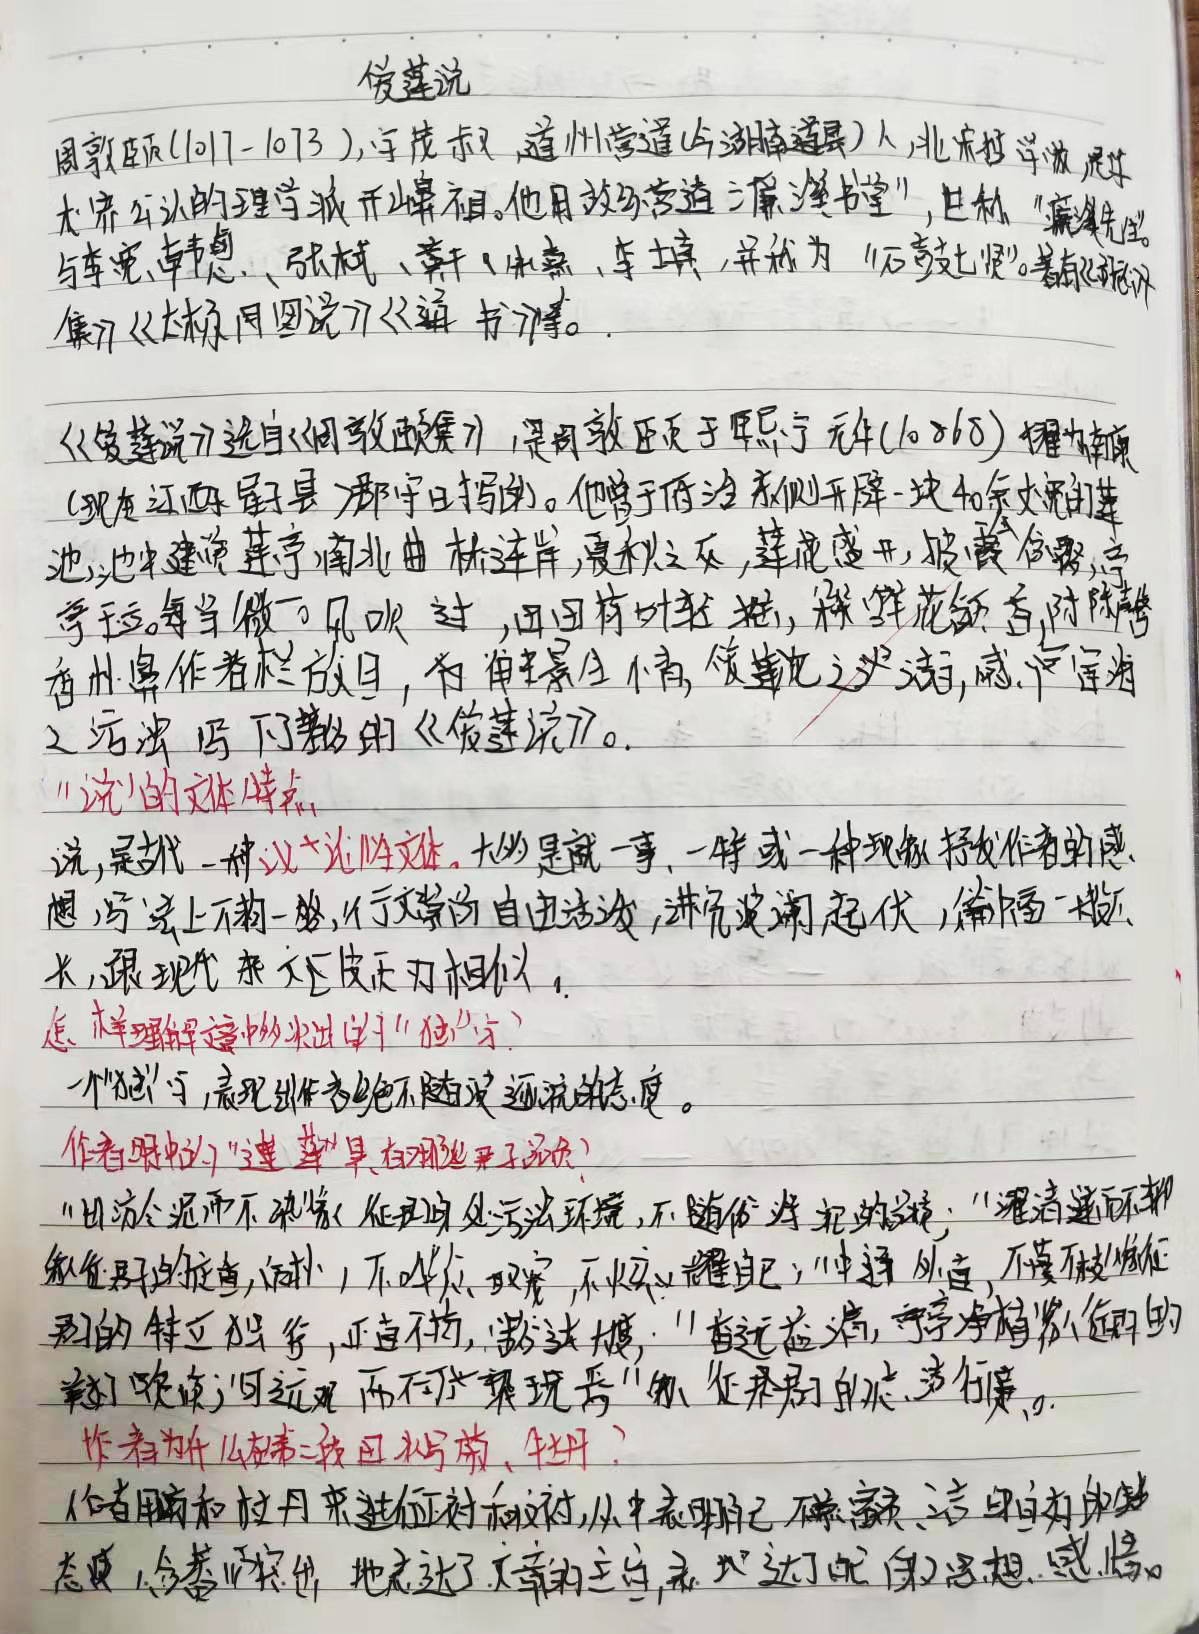 爱莲说
周敦颐(1017-1073),字茂叔,道州营道(今湖南道县)人,北宋哲学家,是学
术界公认的理学派开山鼻祖。他用故乡营道"濂溪书堂",世称"濂溪先生"。
与李宽、韩愈、张栻、黄干、朱熹、李士真,并称为"石鼓七贤"。著有《周元公
集》《太极图说》《通书》等。
《爱莲说》选自《周敦颐集》,是周敦颐于熙宁元年(1068)擢为南康
(现在江西星子县)郡守日抒写的。他曾于府治东侧开辟一块40余丈宽的莲
池,池中建赏莲亭,南北曲桥连岸,夏秋之交,莲花盛开,披霞含露,亭
亭玉立。每当微风吹过,田田荷叶轻摇,鲜花吐香,阵阵清
香扑鼻作者栏放目,触景生情,爱莲花之洁,感宦海
之污浊写下了著名的《爱莲说》。
"说"的文体特点
说,是古代一种议论性文体。大多是就一事、一物或一种现象抒发作者的感
想,写法上不拘一格,行文崇尚自由活泼,讲究波澜起伏,篇幅一般不
长,跟现代杂文颇为相似。
怎样理解文章中多次出的"独"字?
一个"独"字,表现出作者绝不随波逐流的态度。
作者眼中的"莲"具有哪些君子品质?
"出淤泥而不染"象征君子身处污浊环境,不随俗浮沉的品质;"濯清涟而不妖"
象征君子的庄重,质朴,不哗众取宠,不炫耀自己;"中通外直,不蔓不枝"象征
君子的特立独行,正直不苟,豁达大度;"香远益清,亭亭净植"象征君子的
美好;"可远观而不可亵玩焉"象征君子自尊行廉。
作者为什么在第二段用来写菊、牡丹?
作者用菊和牡丹来进行正衬和反衬,从中表明自己不慕富贵、洁身自好的
态度,含蓄突出地表达了文章的主旨,表达了自己的思想感情。